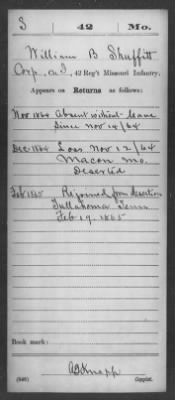 S 42 Mo.
William B Shuffitt
Corp, Co I, 42 Reg't Missouri Infantry.
Appears on Returns as follows:
Nov 1864 Absent without leave
Since Nov 12/64
Dec 1864 Loss Nov 12/64
Macon Mo.
Deserted
Feb 1865 Rejoined from desertion
Tullahoma Tenn
Feb 17-1865
Book mark:
(546) Copyist.